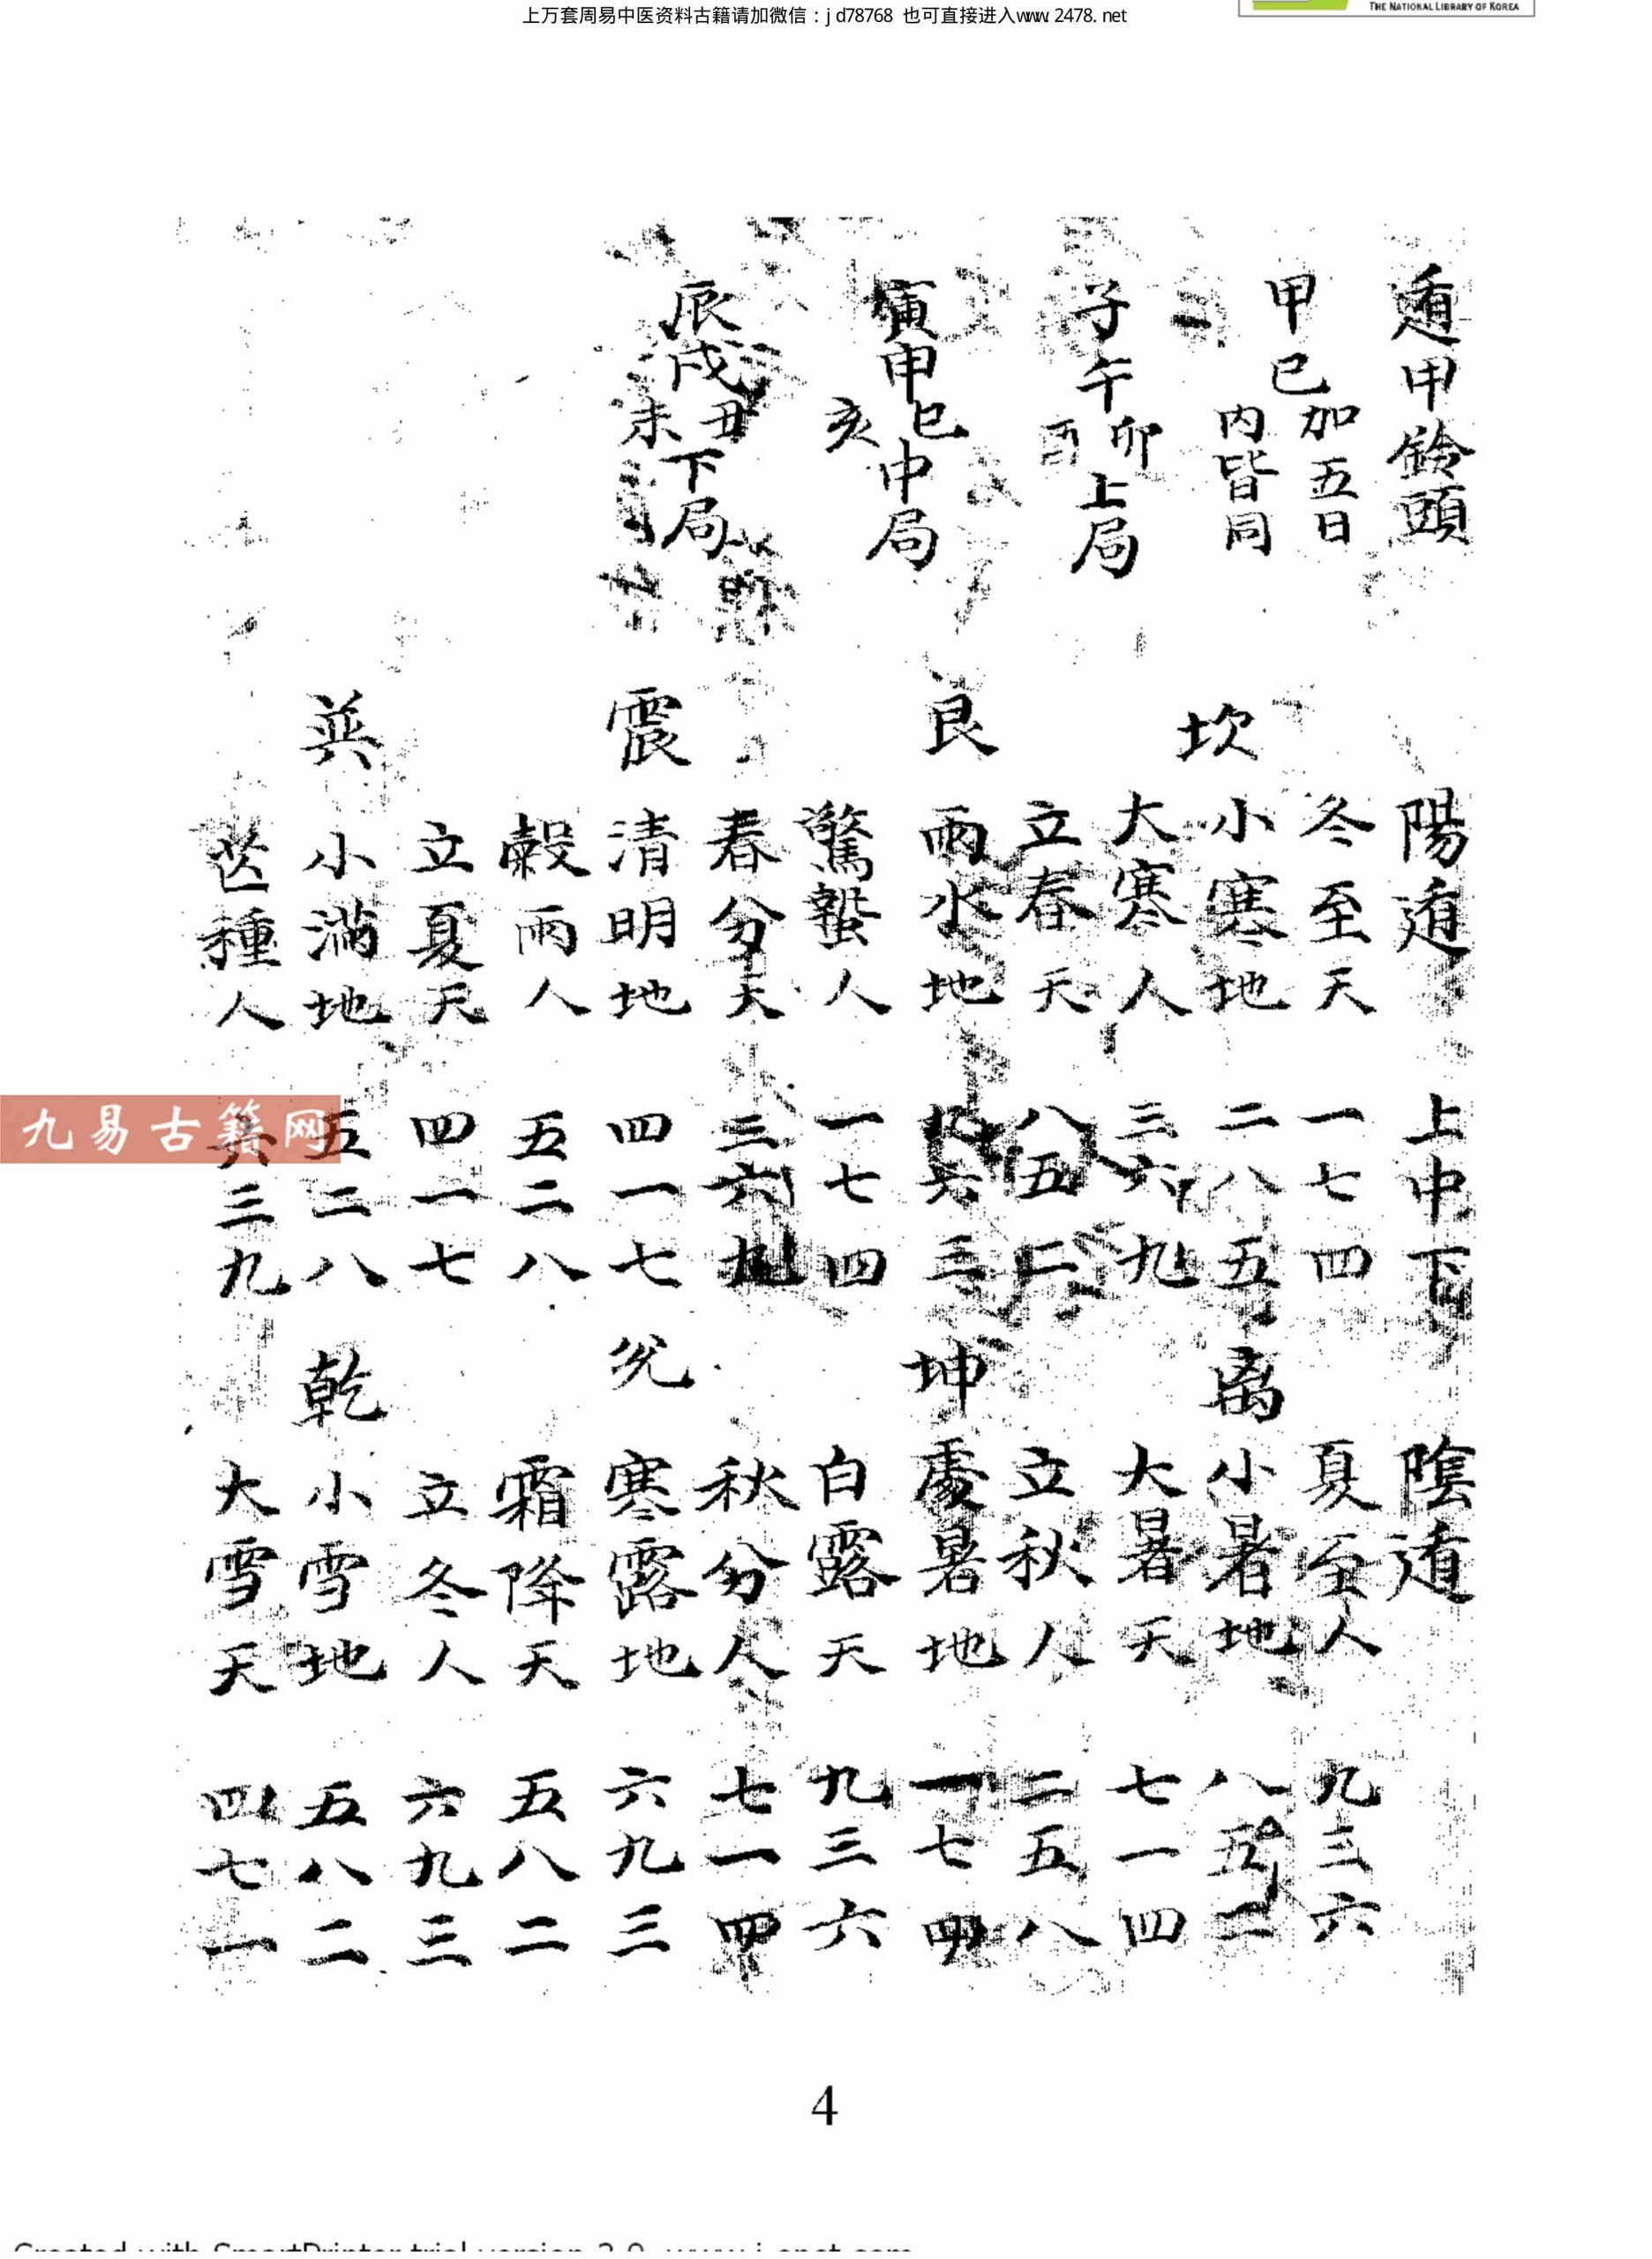 上万套周易中医资料古籍请加微信：jd78768 也可直接进入www.2478.net
THE NATIONAL LIBRARY OF KOREA
遁甲鈴頭
甲己加五日内皆同
子午卯酉上局
寅申巳亥中局
辰戌丑未下局
陽遁 上中下 陰遁
冬至天 一七四 夏至人 九三六
坎 小寒地 二八五 离 小暑地 八五二
大寒人 三六九 大暑天 七一四
立春天 八五二 立秋人 二五八
艮 雨水地 九六三 坤 處暑地 一七四
驚蟄人 一七四 白露天 九三六
春分天 三六九 秋分人 七一四
震 清明地 四一七 兊 寒露地 六九三
穀雨人 五二八 霜降天 五八二
立夏天 四一七 立冬人 六九三
巽 小滿地 五二八 乾 小雪地 五八二
芒種人 六三九 大雪天 四七一
九易古籍网
4
Created with SmartPrinter trial version